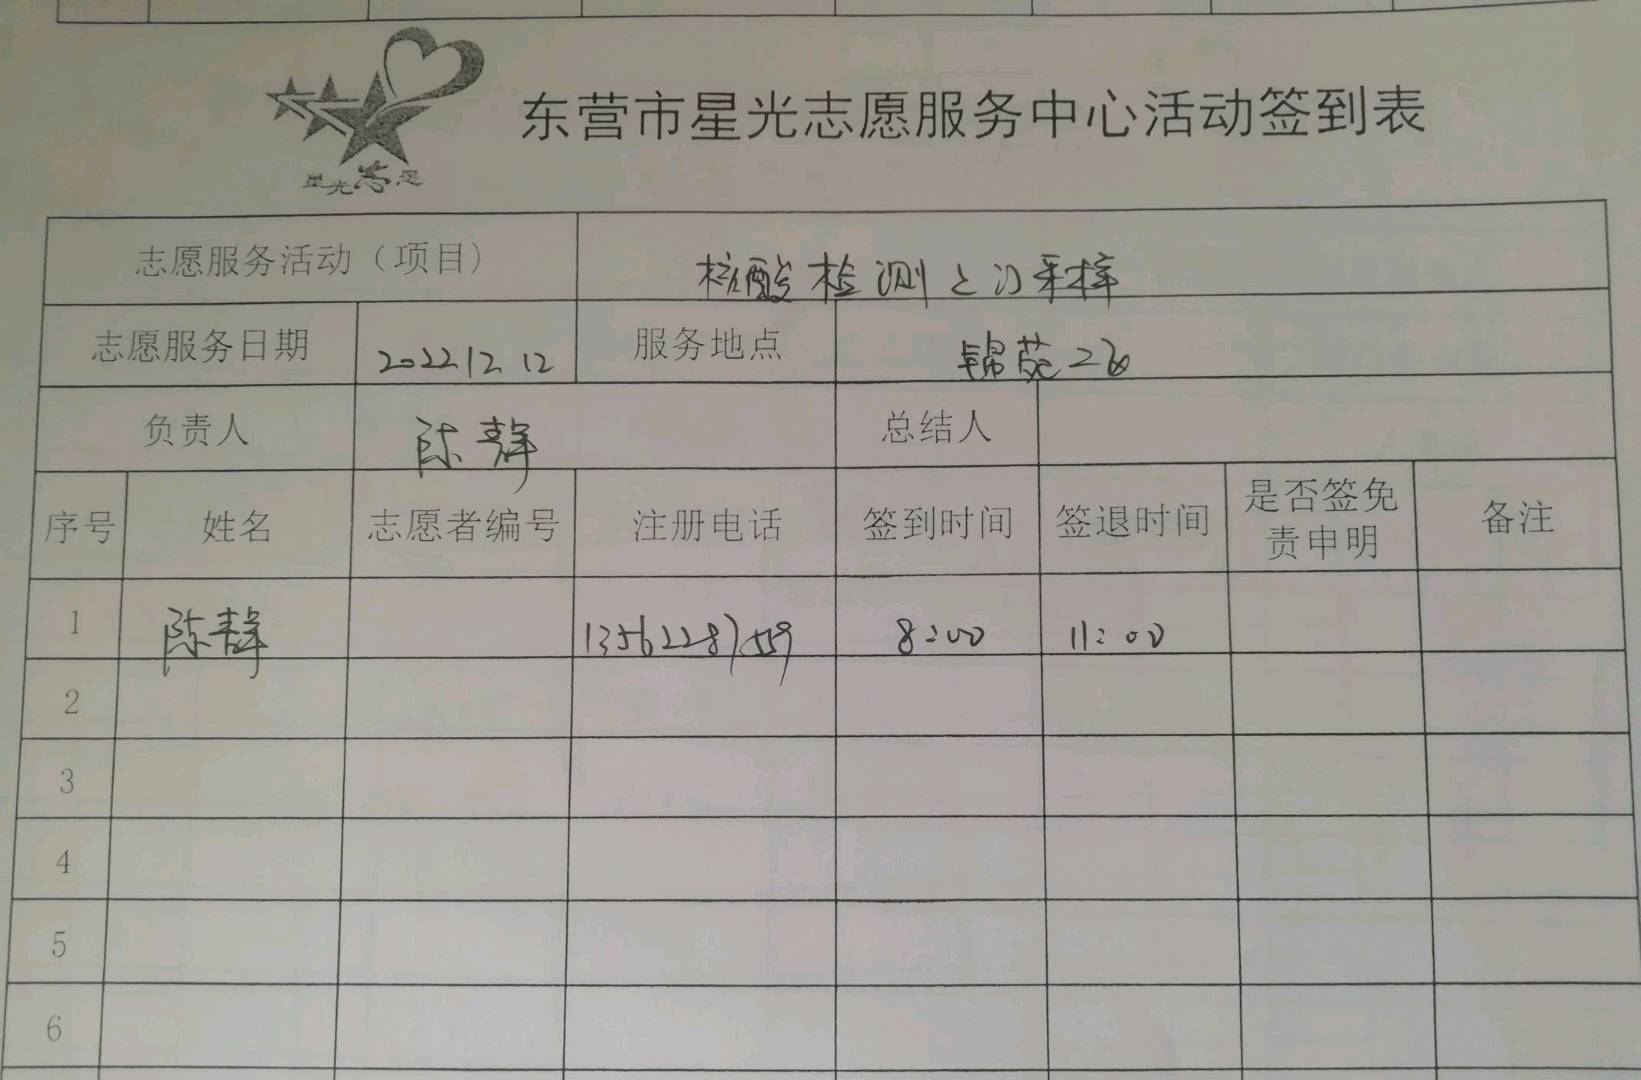 星光志愿
东营市星光志愿服务中心活动签到表
志愿服务活动（项目） 核酸检测上门采样
志愿服务日期 2022 12 12 服务地点 锦苑二
负责人 陈静 总结人
序号 姓名 志愿者编号 注册电话 签到时间 签退时间 是否签免责申明 备注
1 陈静 8:00 11:00
2
3
4
5
6